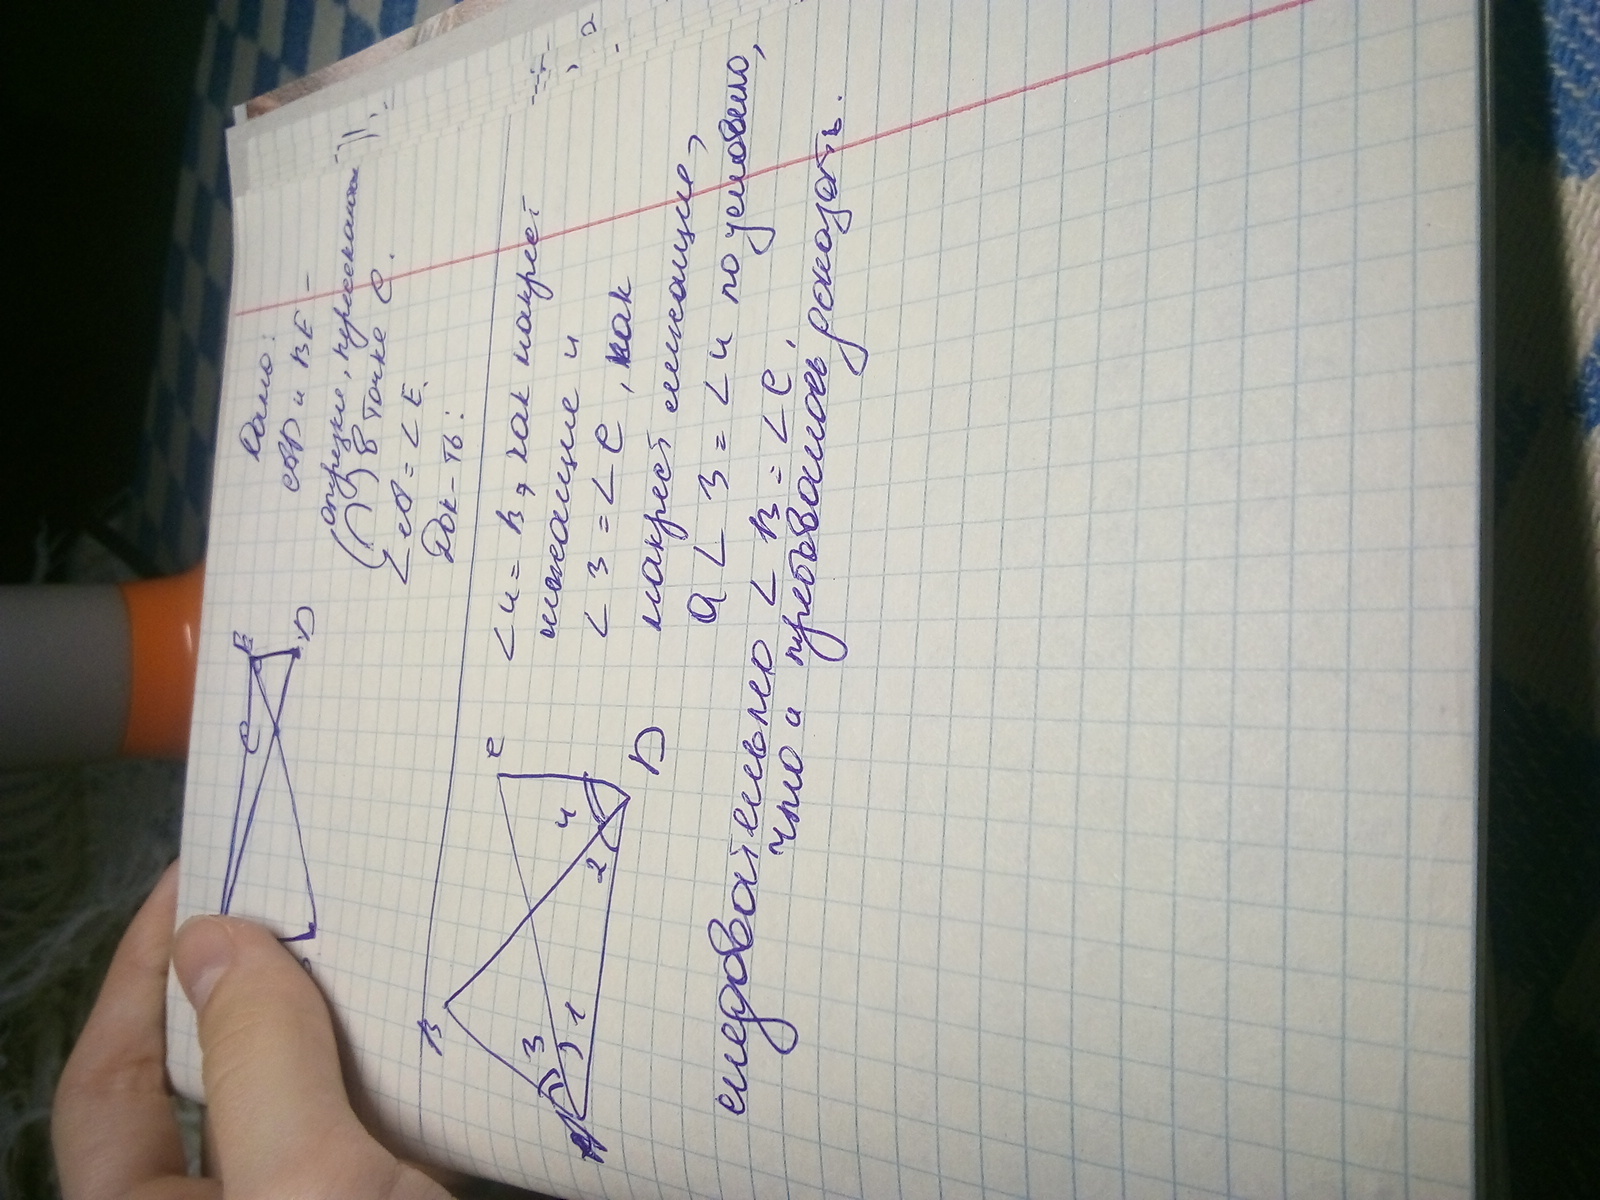 Дано:
и BE -
отрезки, пересекаются
в точке C.
= ∠ E.
Док-ть:
E
C
D
∠ 4 = B, как накрест
лежащие и
∠ 3 = ∠ C, как
накрест лежащие,
а ∠ 3 = ∠ 4 по условию,
следовательно ∠ B = ∠ C,
что и требовалось доказать.
B
C
3
4
1
2
A
D